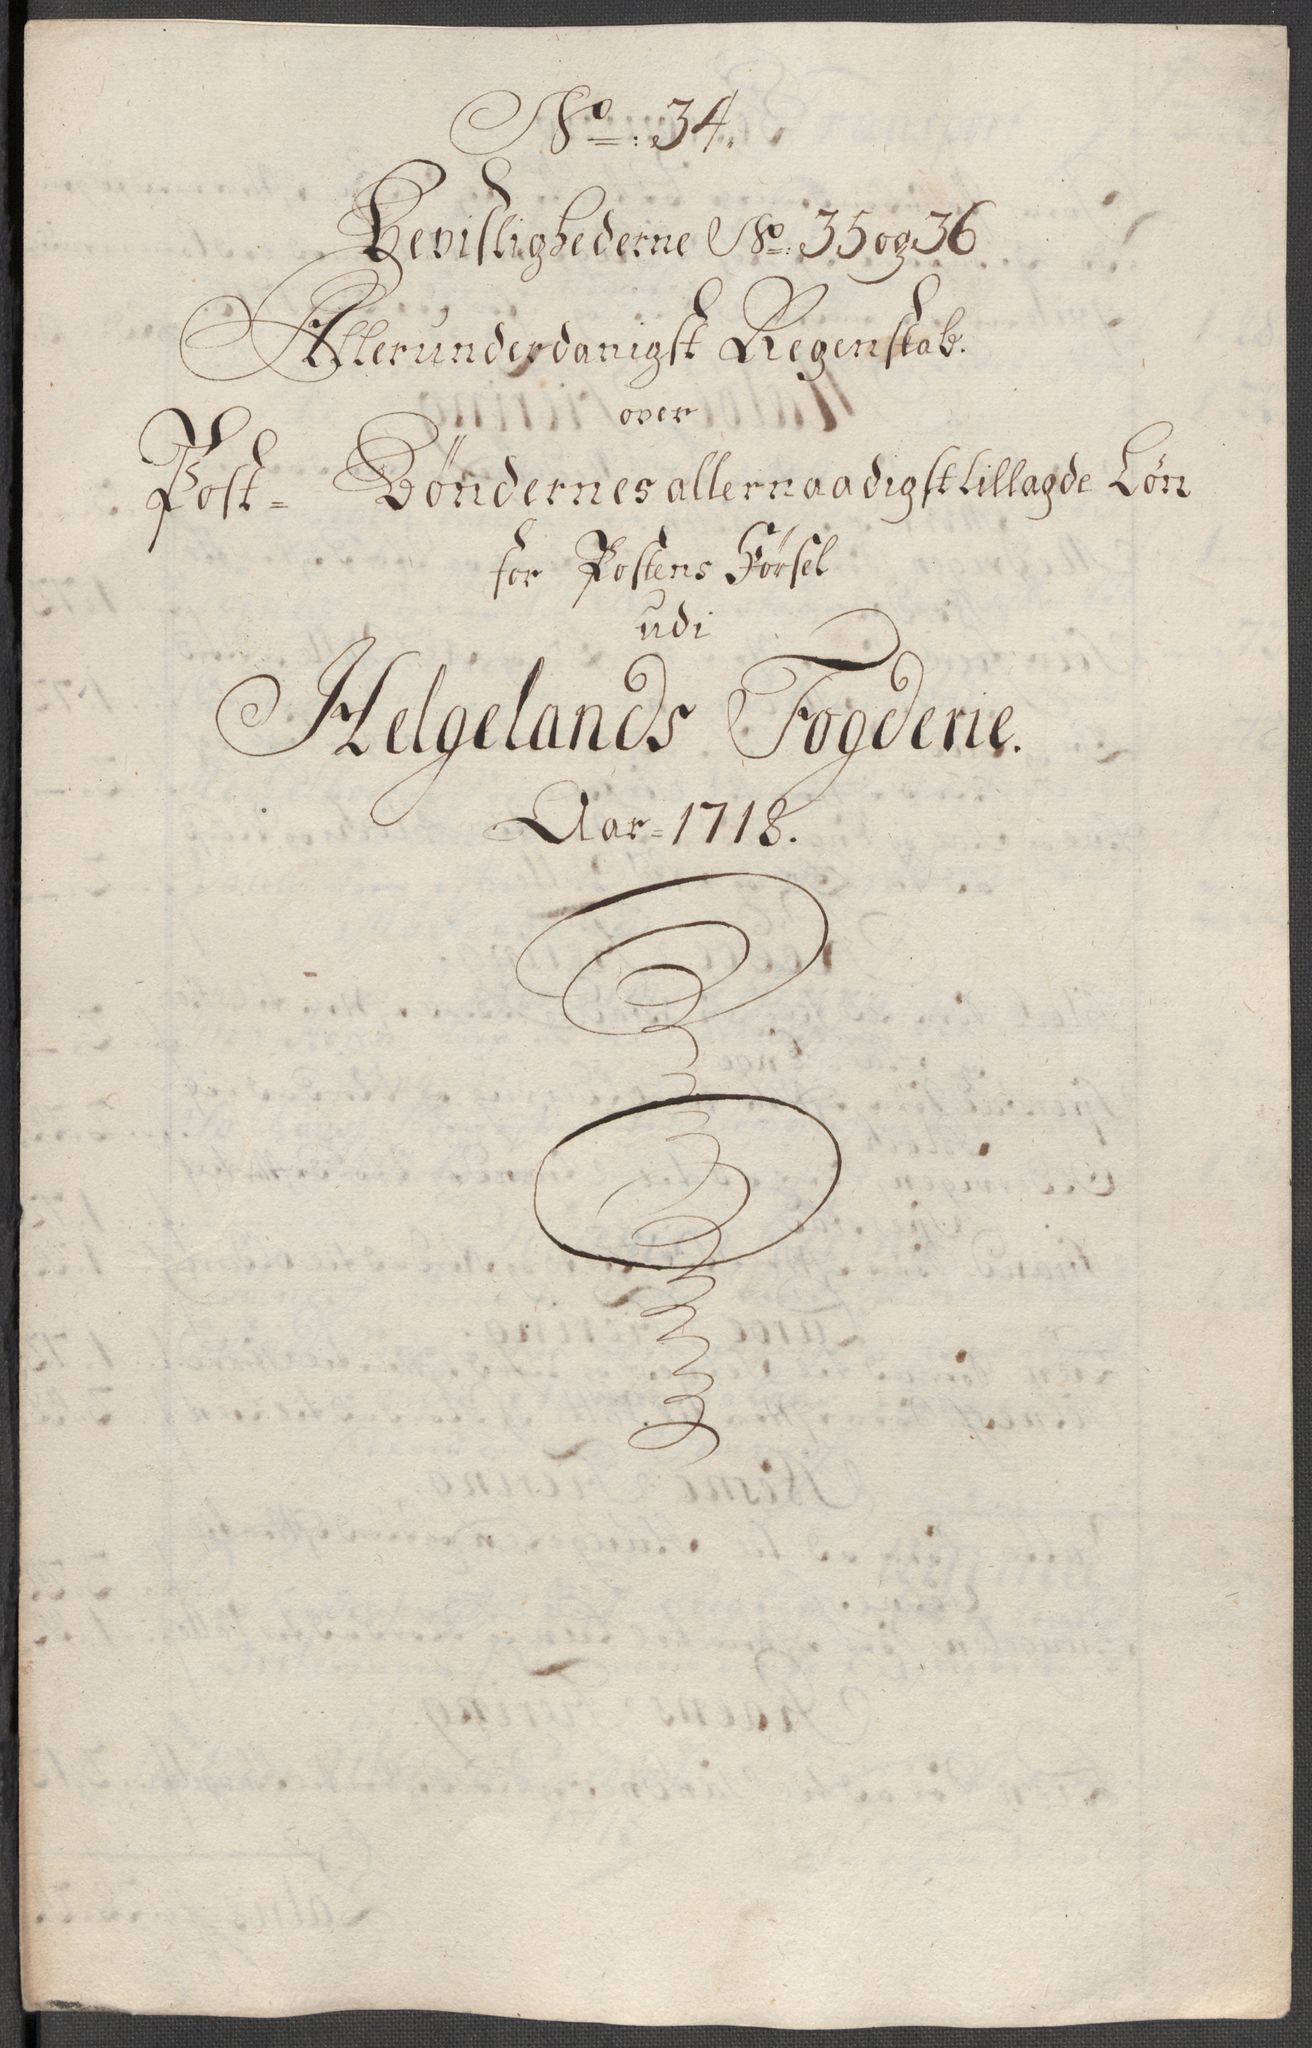 No: 34.
Bevislighederne No: 35 og 36
Allerunderdanigst Regenskab.
over
Post- Bøndernes allernaadigst tillagde Løn
for Postens Førsel
udi
Helgelands Fogderie.
Aar- 1718.